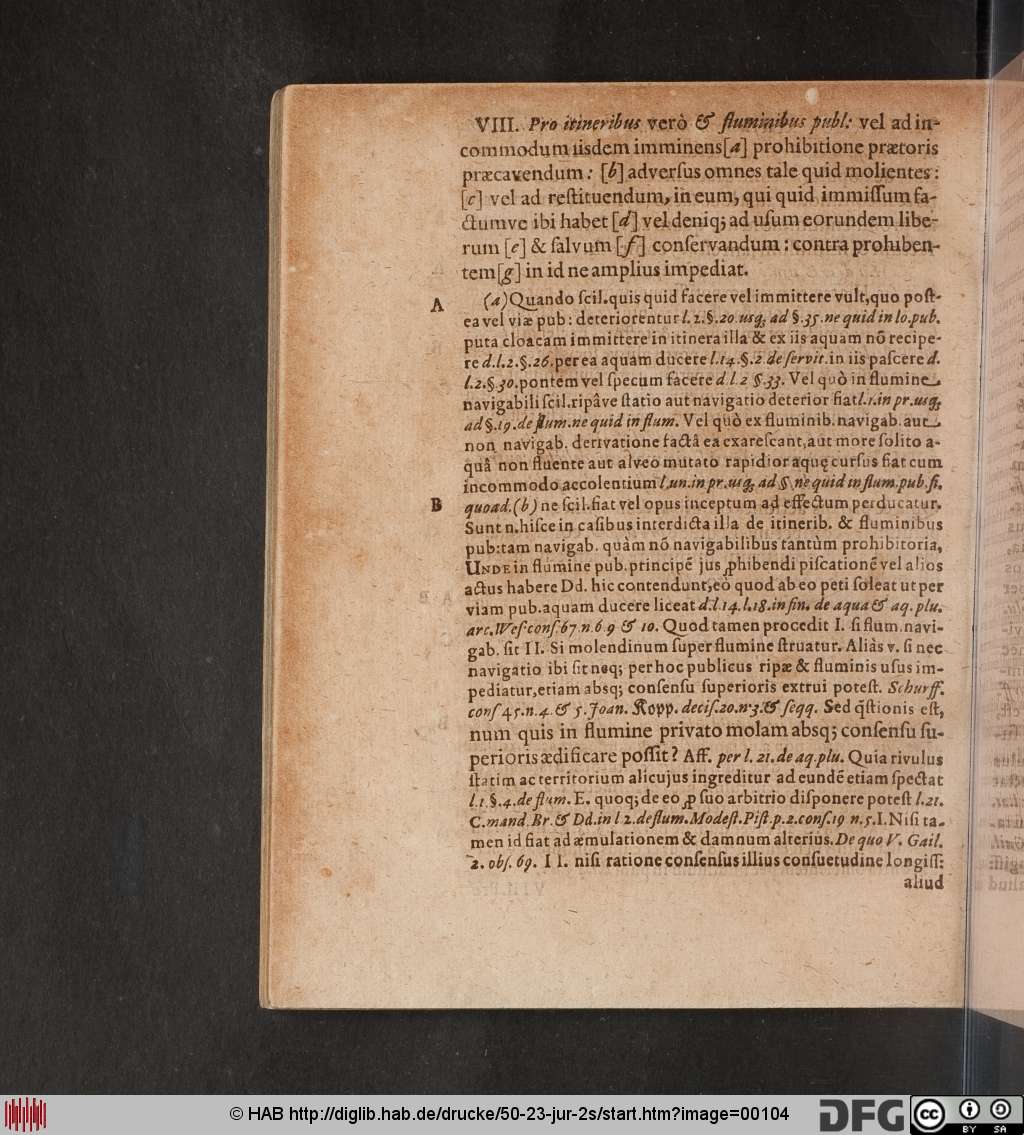 VIII. Pro itineribus verò & fluminibus publ: vel ad in-
commodum iisdem imminens [a] prohibitione prætoris
præcavendum: [b] adverſus omnes tale quid molientes:
[c] vel ad reſtituendum, in eum, qui quid immiſſum fa-
ctumve ibi habet [d] vel deniq; ad uſum eorundem libe-
rum [e] & ſalvum [f] conſervandum: contra prohiben-
tem [g] in id ne amplius impediat.
A (a) Quando ſcil. quis quid facere vel immittere vult, quo poſt-
ea vel viæ pub: deteriorentur l. 2. §. 20. usq; ad §. 35. ne quid in lo. pub.
puta cloacam immittere in itinera illa & ex iis aquam nō recipe-
re d. l. 2. §. 26. per ea aquam ducere l. 14. §. 2. de ſervit. in iis paſcere d.
l. 2. §. 30. pontem vel ſpecum facere d. l. 2 §. 33. Vel quò in flumine
navigabili ſcil. ripâve ſtatio aut navigatio deterior fiat l. 1. in pr. usq;
ad §. 19. de flum. ne quid in flum. Vel quò ex fluminib. navigab. aut
non navigab. derivatione factâ ea exareſcant, aut more ſolito a-
quâ non fluente aut alveo mutato rapidior aquę curſus fiat cum
incommodo accolentium l. un. in pr. usq; ad § ne quid in flum. pub. fi.
B quo ad. (b) ne ſcil. fiat vel opus inceptum ad effectum perducatur.
Sunt n. hiſce in caſibus interdicta illa de itinerib. & fluminibus
pub: tam navigab. quàm nō navigabilibus tantùm prohibitoria,
UNDE in flumine pub. principē jus ꝓhibendi piſcationē vel alios
actus habere Dd. hic contendunt, eò quod ab eo peti ſoleat ut per
viam pub. aquam ducere liceat d. l. 14. l. 18. in fin. de aqua & aq. plu.
arc. Weſ. conſ. 67. n. 6. 9 & 10. Quod tamen procedit I. ſi flum. navi-
gab. ſit II. Si molendinum ſuper flumine ſtruatur. Aliàs v. ſi nec
navigatio ibi ſit neq; per hoc publicus ripæ & fluminis uſus im-
pediatur, etiam absq; conſenſu ſuperioris extrui poteſt. Schurff.
conſ 45. n. 4. & 5. Joan. Kopp. deciſ. 20. n. 3. & ſeqq. Sed q̄ſtionis eſt,
num quis in flumine privato molam absq; conſenſu ſu-
perioris ædificare poſſit? Aff. per l. 21. de aq. plu. Quia rivulus
ſtatim ac territorium alicujus ingreditur ad eundē etiam ſpectat
l. 1. §. 4. de flum. E. quoq; de eo ꝓ ſuo arbitrio diſponere poteſt l. 21.
C. mand. Br. & Dd. in l 2. de flum. Modeſt. Piſt. p. 2. conſ. 19 n. 5. I. Niſi ta-
men id fiat ad æmulationem & damnum alterius. De quo V. Gail.
2. obſ. 69. II. niſi ratione conſenſus illius conſuetudine longiſſ:
aliud
© HAB http://diglib.hab.de/drucke/50-23-jur-2s/start.htm?image=00104
DFG
cc
BY SA